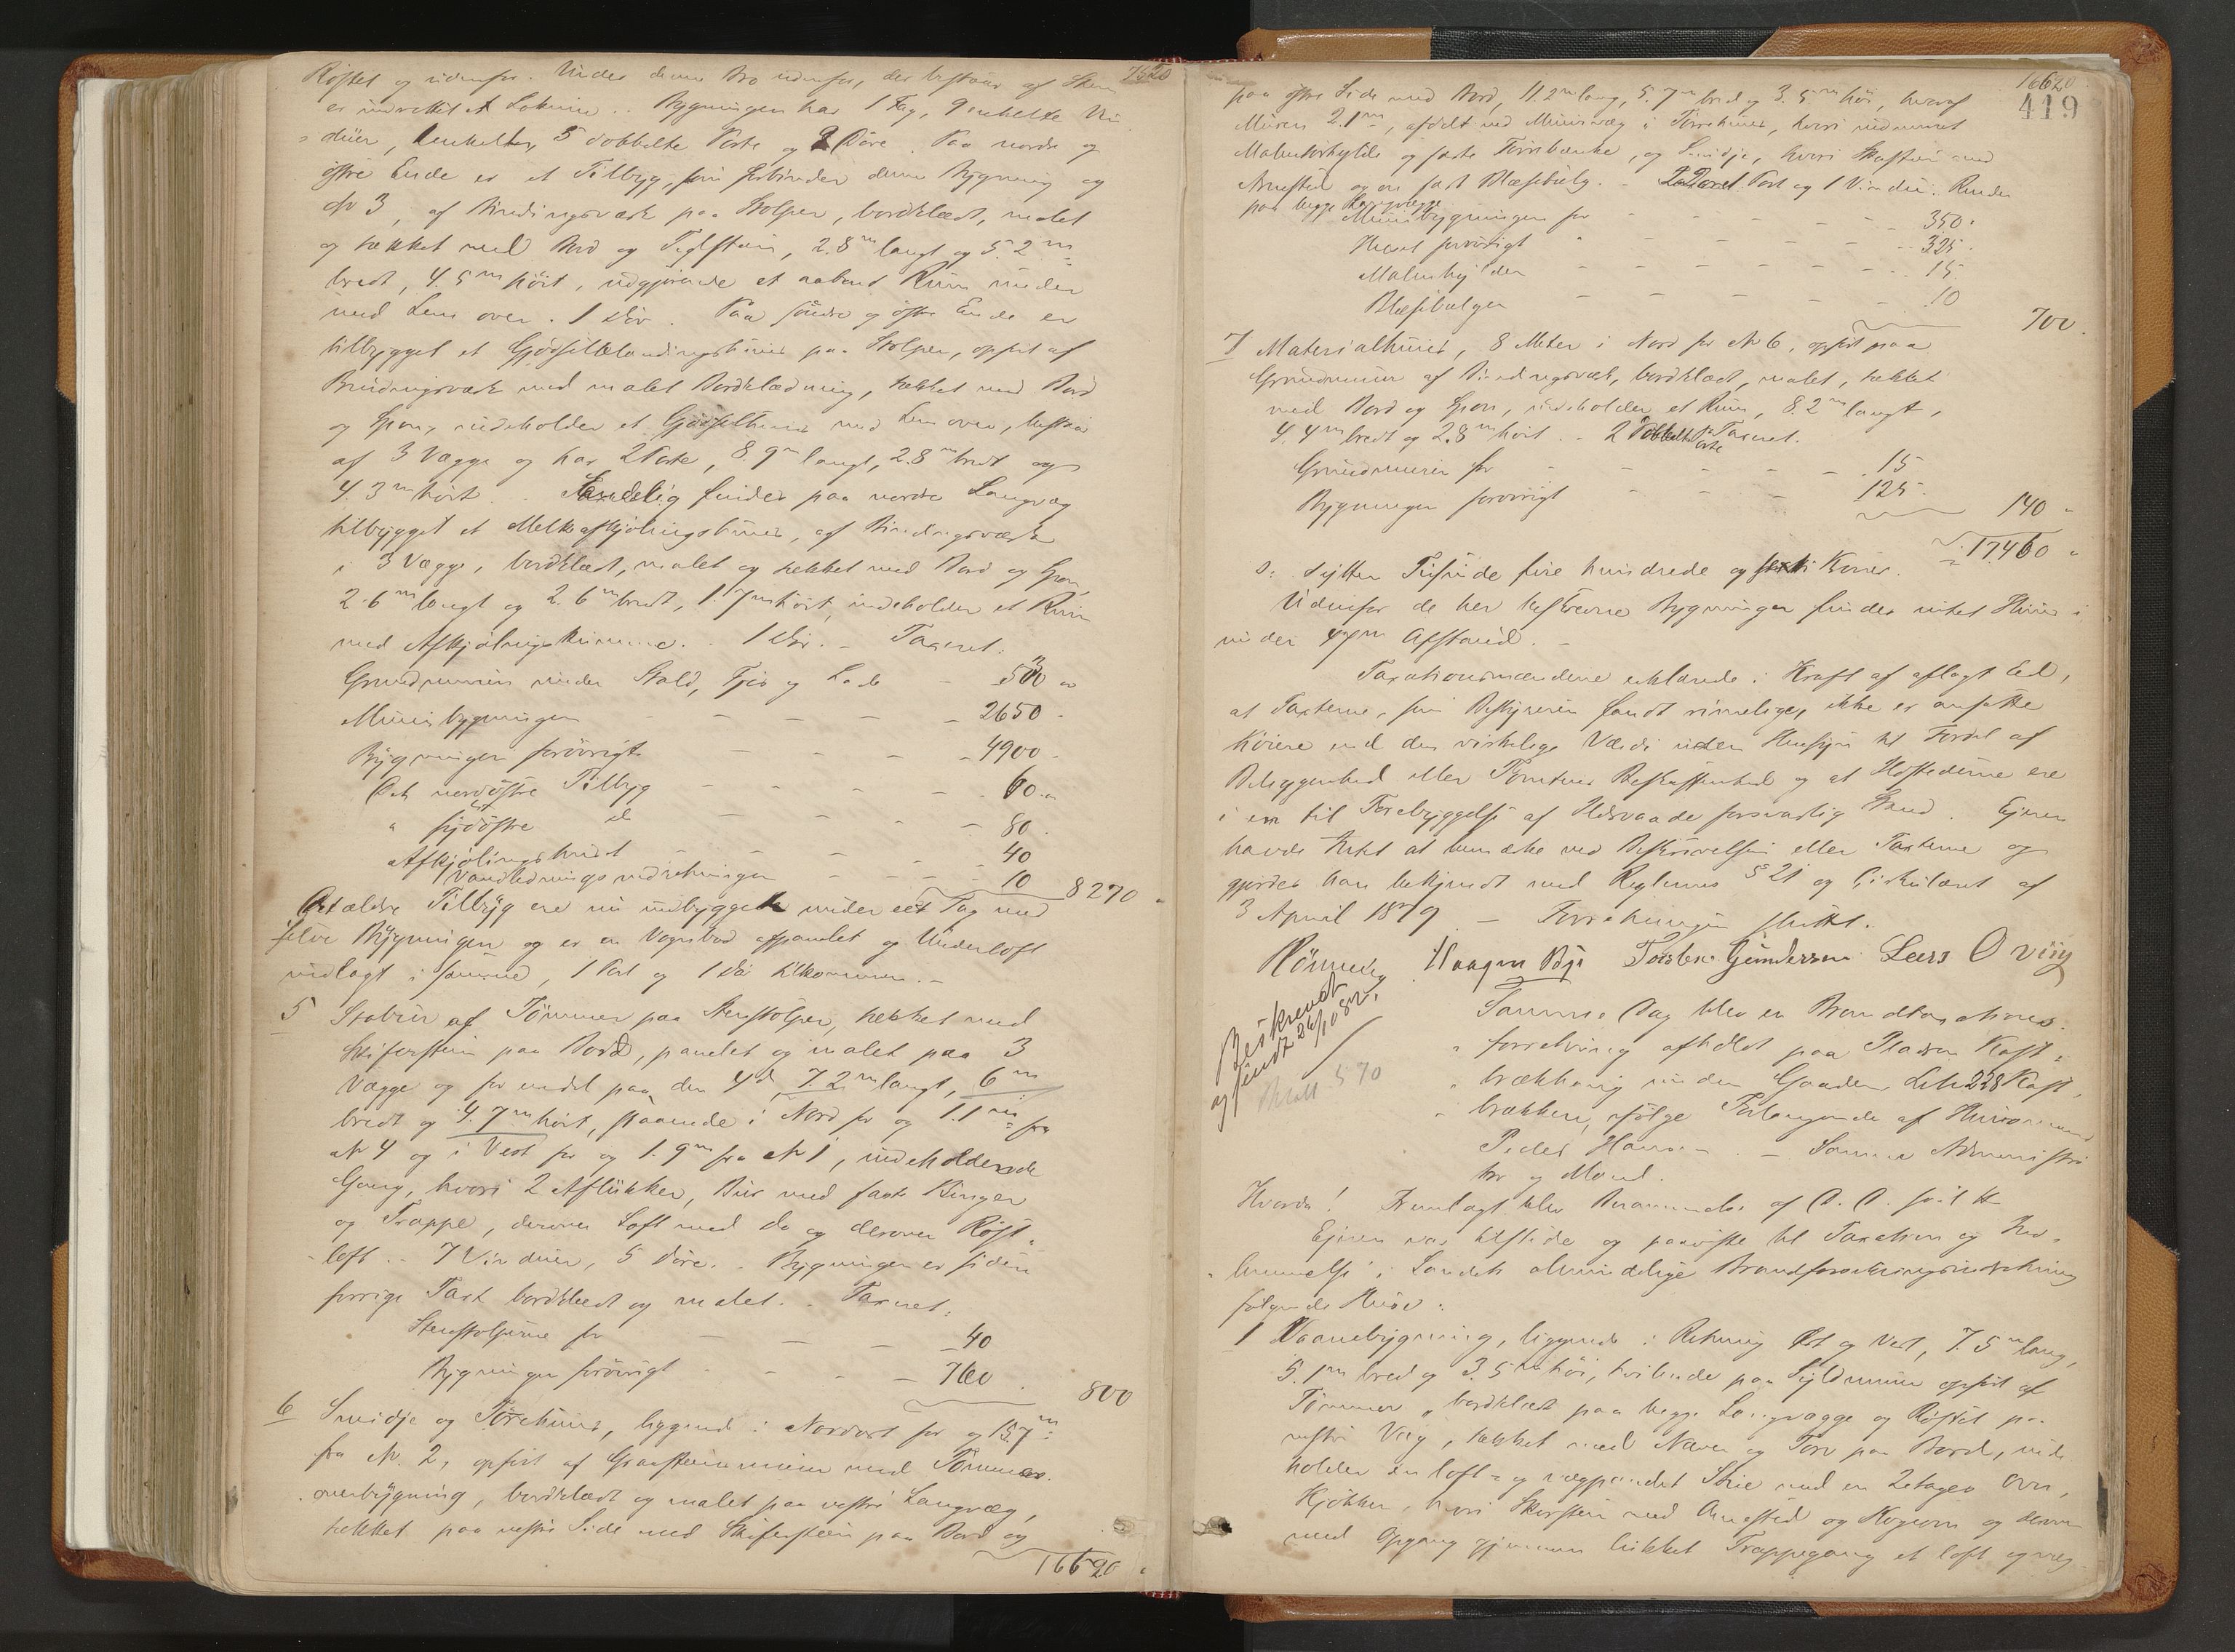 7550
Røstet og udenfor. Under denne Bro udenfor, der bestaar af Sten
er indrettet et Lokum. Bygningen har 1 Fag, 9 enkelte Vin
duer, 1 enkelte, 5 dobbelte Porte og 2 Døre. Paa nordre og
østre Ende er et Tilbyg, som forbinder denne Bygning og
No 3, af Bindingsværk paa Stolper, bordklædt, malet
og tækket med Bord og Teglsten, 2.8 m langt og 5.2 m
bredt, 4.5 m høit, udgjørende et aabent Rum under
med Lem over. 1 Dør. Paa søndre og østre Ende er
tilbygget et Gjødselblandingshuus paa Stolper, opført af
Bindingsværk med malet Bordklædning, tækket med Bord
og Spon, indeholder et Gjødselhuus med Lem over, bestaar
af 3 Vægge og har 2 Porte, 8.9 m langt, 2.8 m bredt og
4.3 m høit. Endelig findes paa nordre Langvæg
tilbygget et Melkeafkjølingshuus, af Bindingsværk
i 3 Vægge, bordklædt, malet og tækket med Bord og Spon,
2.6 m langt og 2.6 m bredt, 1.7 m høit, indeholder et Rum
med Afkjølingskumme. 1 Dør. - Taxeret:
Grundmuren under Stald, Fjøs og Lade - 530 "
Muurbygningen - - - - - 2650 -
Bygningen forøvrigt - - - - 4900 -
Det nordøstre Tilbyg - - - - - 60 "
" sydøstre do - - - - 80
Afkjølingshuset - - - - 40
Vandledningsindretningen - - - - 10 8270 "
Det ældre Tilbyg ere nu indbygget under eet Tag med
selve Bygningen og er en Vognbod afpanelet og Underloft
indlagt i samme, 1 Port og 1 Dør tilkommen. -
5 Stabur af Tømmer paa Stenstolper, tækket med
Skifersten paa Bord, panelet og malet paa 3
Vægge og for endel paa den 4de, 7.2 m langt, 6 m
bredt og 4.7 m høit, staaende i Nord for og 11 m fra
No 4 og i Vest for og 1.9 m fra No 1, indeholdende
Gang, hvori 2 Aflukker, Bur med faste Binger
og Trappe, derover Loft med do og derover Røst=
loft. - 7 Vinduer, 5 Døre. - Bygningen er siden
forrige Taxt bordklædt og malet. - Taxeret:
Stenstolperne for - - - 40
Bygningen forøvrigt - - - - 760 . 800
6 Smidje og Tørrehuus, liggende i Nordost for og 15.7 m
fra No. 2, opført af Graastensmuur med Tømmer
overbygning, bordklædt og malet paa vestre Langvæg,
tækket paa vestre Side med Skifersten paa Bord og
16620 "
16620
419
paa østre Side med Bord, 11.2 m lang, 5.7 m bred og 3.5 m høi, hvoraf
Muren 2.1 m, afdelt ved Muurvæg i Tørrehuus, hvori indmuret
Malmtørhylde og faste Tørrebænke, og Smidje, hvori Skorsten med
Arnested og en fast Blæsebælg. - 2 Døre, 1 Port og 1 Vindu. Render
paa begge Langvægge.
Muurbygningen for - - - - 350 "
Huset forøvrigt - - - - - 325 -
Malmhylden - - - - - - 15
Blæsebælgen - - - - - 10
700.
7 Materialhuus, 8 Meter i Nord for No 6, opført paa
Grundmuur af Bindingsværk, bordklædt, malet, tækket
med Bord og Spon, indeholder et Rum, 8.2 m langt,
4.4 m bredt og 2.8 m høit. - 2 dobbelte Porte Taxeret.
Grundmuren for - - - - - 15
Bygningen forøvrigt - - - 125 140 "
17460 "
o: sytten Tusinde fire hundrede og sexti Kroner.
Udenfor de her beskrevne Bygninger findes intet Huus i
under 47 m Afstand. -
Taxationsmændene erklærede i Kraft af aflagt Ed,
at Taxterne, som Bestyreren fandt rimelige, ikke er ansatte
høiere end den virkelige Værdi uden Hensyn til Fordel af
Beliggenhed eller Tomtens Beskaffenhed og at Ildstederne ere
i en til Forebyggelse af Ildsvaade forsvarlig Stand. Ejeren
havde Intet at bemærke ved Beskrivelsen eller Taxterne og
gjordes han bekjendt med Reglernes § 21 og Cirkulæret af
3 April 1879 - Forretningen sluttet.
Rönneberg Haagen Bye Torsten Gundersen Lars Oving
Beskrevet
og sendt 26/10 82.
Samme Dag blev en Brandtaxations=
" forretning afholdt paa Pladsen Kast=
" brækhaug under Gaarden L.No 238 Kast,
" brækken, ifølge Forlangende af Huusmand
Peder Hansen. - Samme Administra
tor og Mænd.
Hvorda! Fremlagt blev Berammelse af D. D. saal.
Ejeren var tilstede og paaviste til Taxation og Ind=
" lemmelse i Landets almindelige Brandforsikringsindretning
følgende Huse:
1 Vaanebygning, liggende i Retning Øst og Vest, 7.5 m lang,
5.1 m bred og 3.5 m høi, hvilende paa Syldmuur opført af
Tømmer, bordklædt paa begge Langvægge og Røstet paa
vestre Væg, tækket med Næver og Torv paa Bord, inde
holder en loft= og vægpanelet Stue med en 2 etages Ovn,
Kjøkken, hvori Skorsten med Arnested og Kogeovn og derover
med Opgang gjennem lukket Trappegang et loft og væg